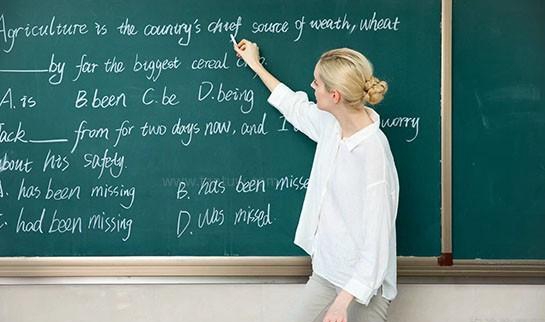 Agriculture is the country's chief source of weath, wheat
____ by far the biggest cereal
A. is B. been C. be D. being
Jack ____ from for two days now, and I worry
about his safety.
A. has been missing B. has been misse
C. had been missing D. was missed.